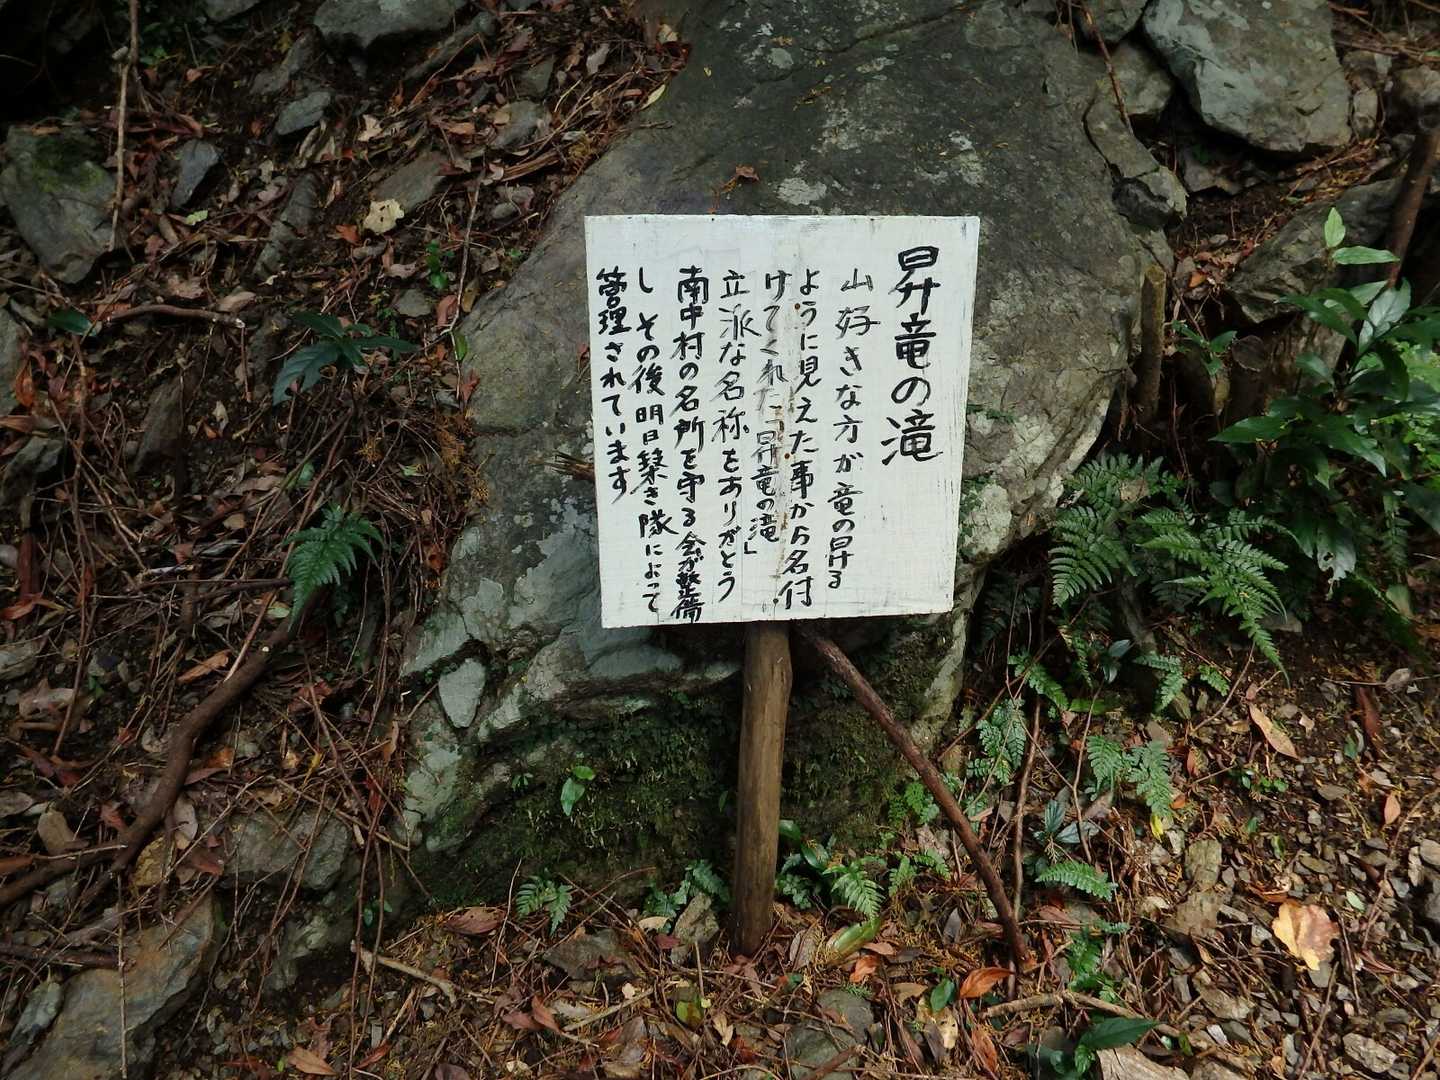 昇竜の滝
山好きな方が竜の昇る
ように見えた事から名付
けてくれた「昇竜の滝」
立派な名称をありがとう
南中村の名所を守る会が整備
しその後明日築き隊によって
管理されています